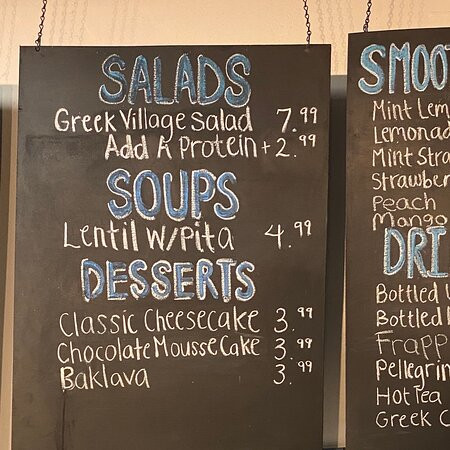 SALADS
Greek Village Salad 7.99
Add A Protein + 2.99
SOUPS
Lentil W/Pita 4.99
DESSERTS
Classic Cheesecake 3.99
Chocolate Mousse Cake 3.99
Baklava 3.99
SMOO
Mint Lem
Lemonad
Mint Stra
Strawber
Peach
Mango
DRI
Bottled
Bottled
Frapp
Pellegrin
Hot Tea
Greek C